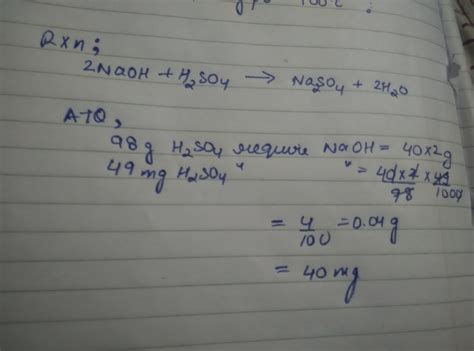 Rxn;
2NaOH + H2SO4 → Na2SO4 + 2H2O
ATQ,
98g H2SO4 require NaOH = 40×2g
49 mg H2SO4 " " = 40×2×49/98 1000
= 4/100 = 0.04g
= 40mg